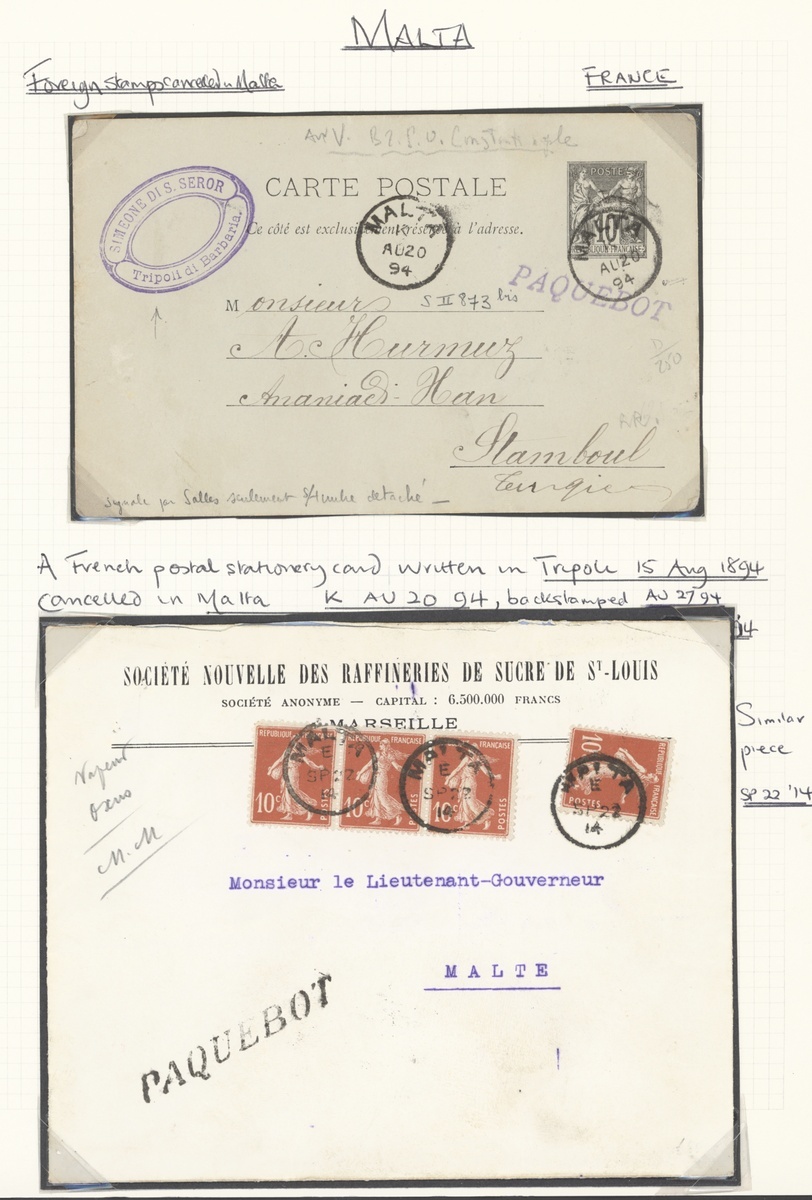 MALTA
Foreign stamps cancelled in Malta
FRANCE
B2.P.O. Constantinople
SIMEONE DI S. SEROR
Tripoli di Barbaria.
CARTE POSTALE
Ce côté est exclusivement réservé à l'adresse.
POSTE
10
MALTA
K
AU 20
94
MALTA
AU 20
94
PAQUEBOT
Monsieur
S II 873 bis
A. Hurmuz
Ananiadi-Han
Stamboul
Turquie
D/250
signale par Salles seulement s/timbre detaché —
A French postal stationery card written in Tripoli 15 Aug 1894
cancelled in Malta K AU 20 94, backstamped AU 27 94
14
SOCIÉTÉ NOUVELLE DES RAFFINERIES DE SUCRE DE ST-LOUIS
SOCIÉTÉ ANONYME — CAPITAL : 6.500.000 FRANCS
MARSEILLE
REPUBLIQUE FRANÇAISE
10c POSTES
MALTA
E
SP 22
14
MALTA
E
SP 22
14
MALTA
E
SP 22
14
10c
POSTES
REPUBLIQUE FRANÇAISE
Vapeur
Oxus
M.M
Similar
piece
SP 22 '14
Monsieur le Lieutenant-Gouverneur
MALTE
PAQUEBOT